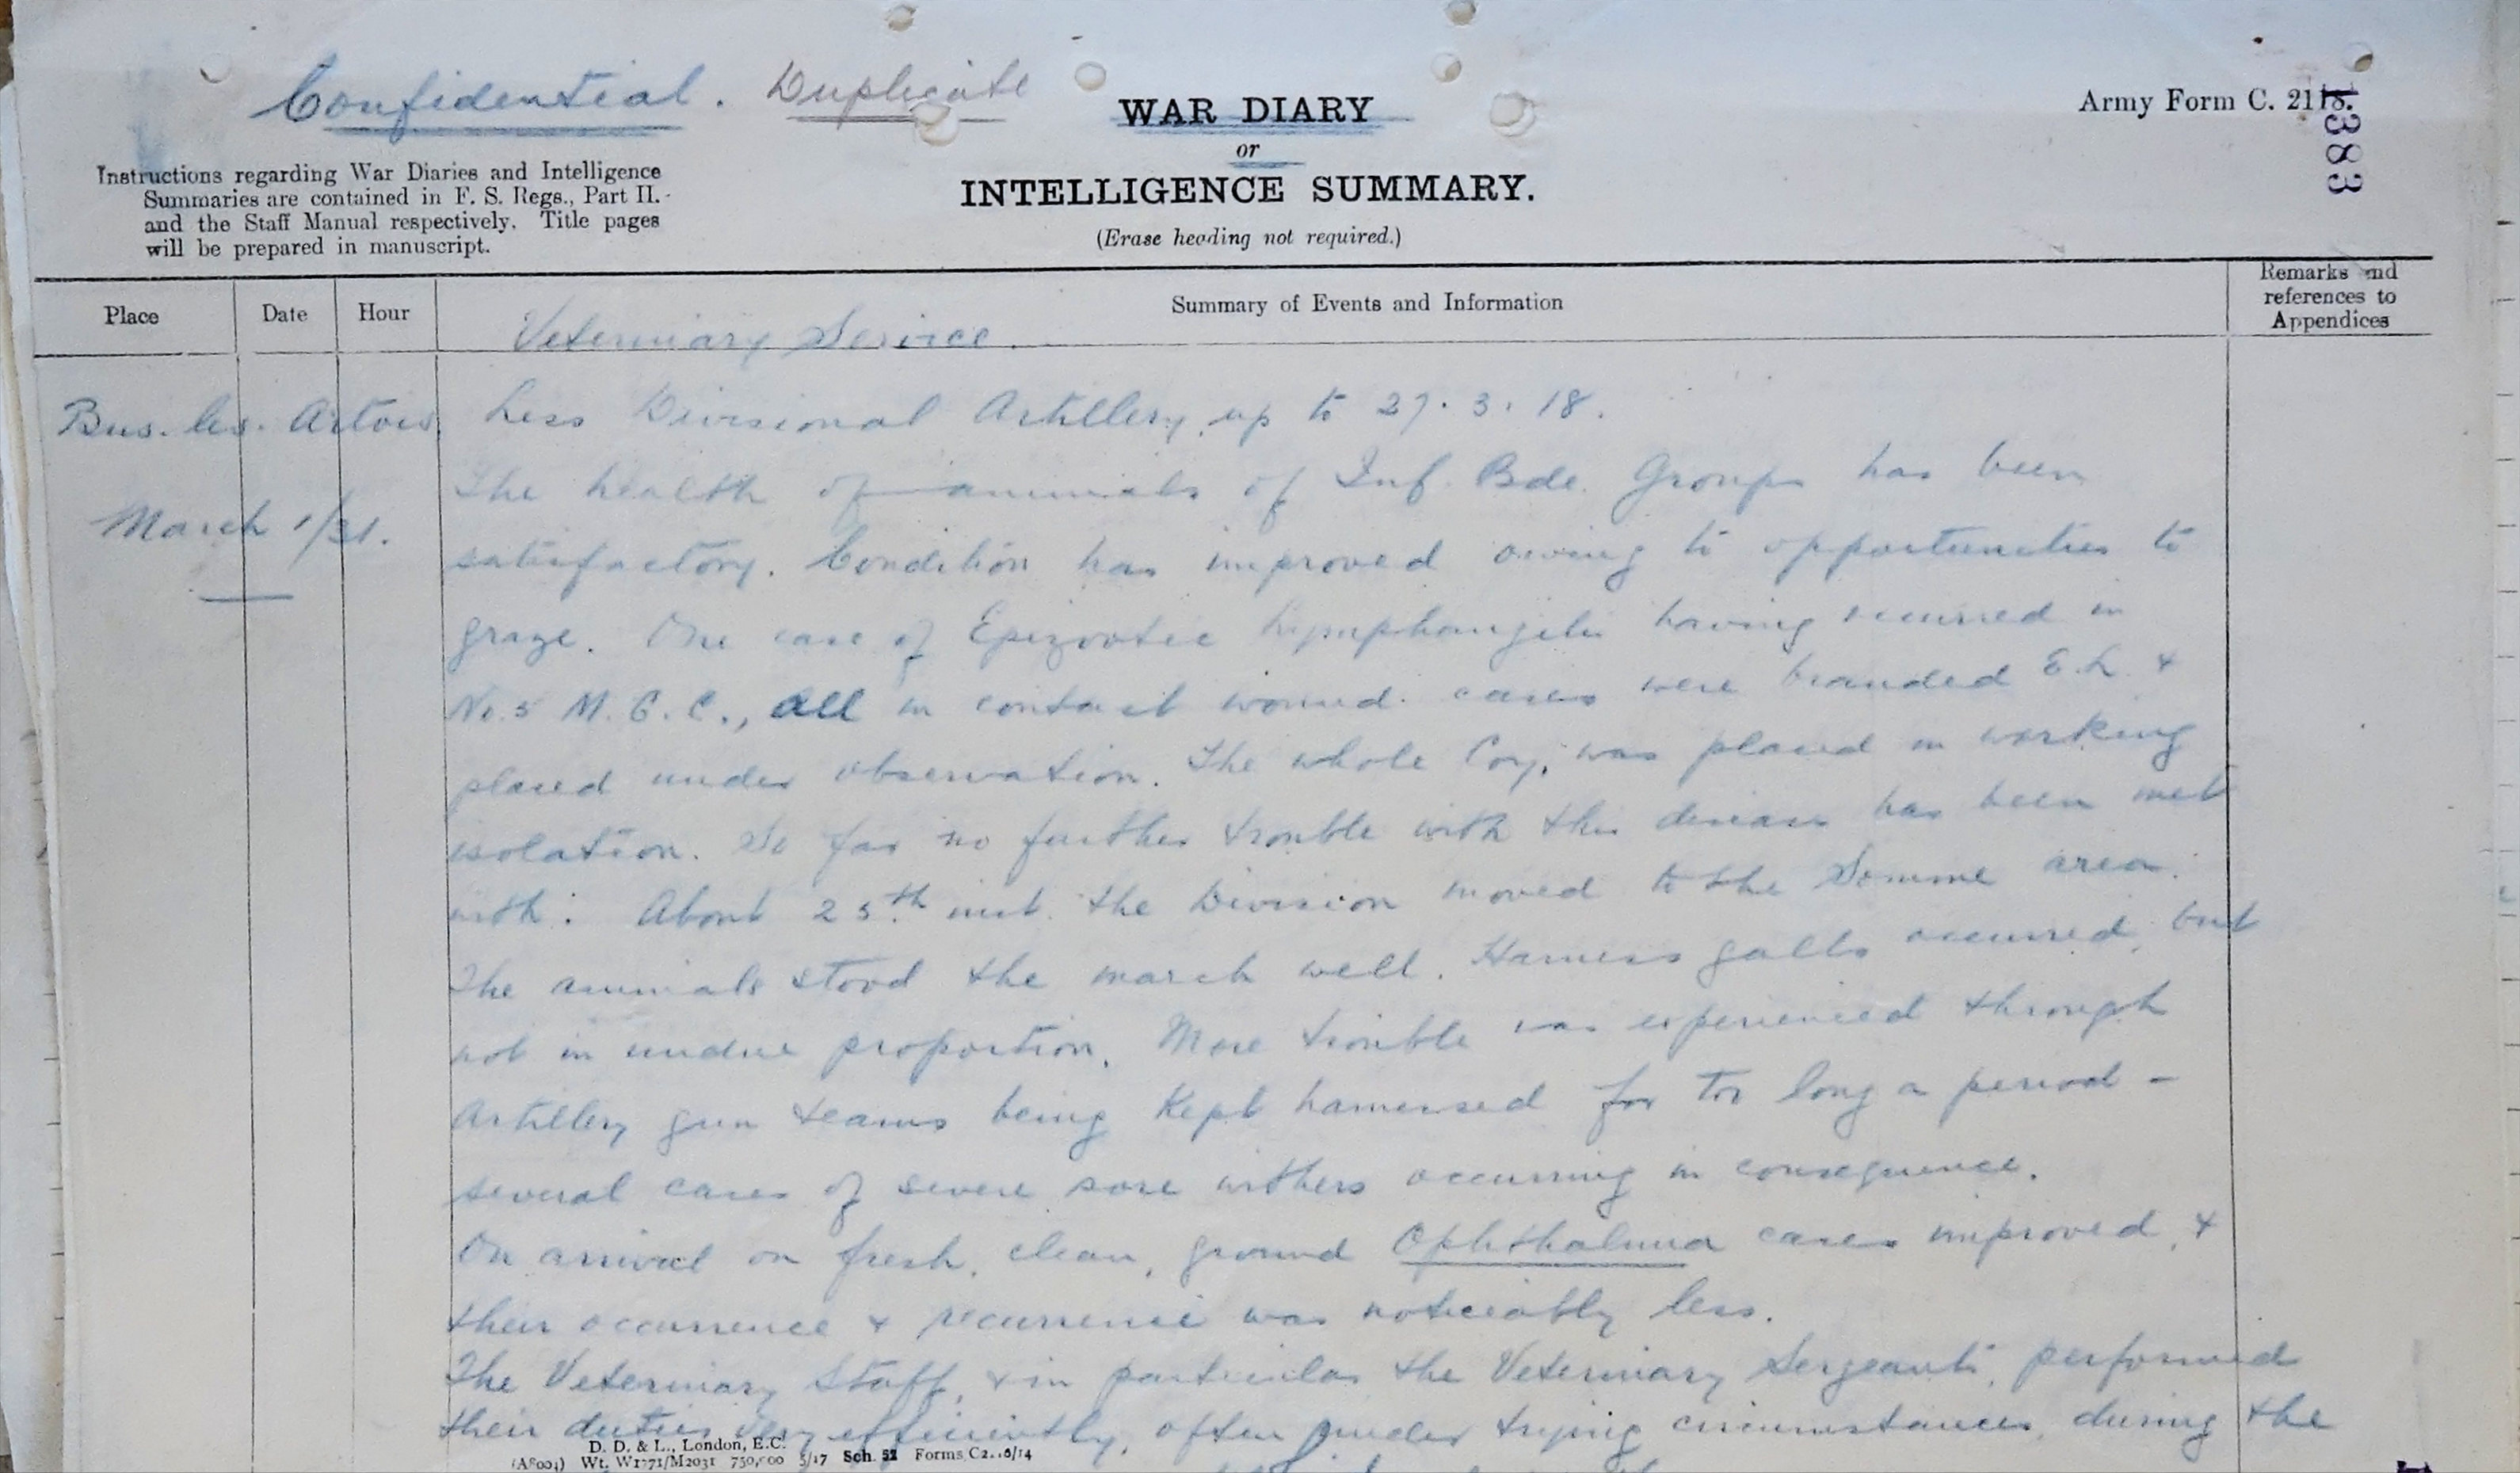 Confidential. Duplicate
WAR DIARY
or
INTELLIGENCE SUMMARY.
(Erase heading not required.)
Army Form C. 2118.
1383
Instructions regarding War Diaries and Intelligence
Summaries are contained in F. S. Regs., Part II.
and the Staff Manual respectively. Title pages
will be prepared in manuscript.
Place
Date
Hour
Summary of Events and Information
Remarks and
references to
Appendices
Veterinary Service.
Bus. les. Artois.
March 1/31.
Less Divisional Artillery, up to 27. 3. 18.
The health of animals of Inf. Bde. Groups has been
satisfactory. Condition has improved owing to opportunities to
graze. One case of Epizootic Lymphangitis having occurred in
No. 5 M. G. C., all in contact wound. cases were branded E. L. &
placed under observation. The whole Coy, was placed in working
isolation. So far no further trouble with this disease has been met
with. About 25th inst. the Division moved to the Somme area.
The animals stood the march well. Harness galls occurred, but
not in undue proportion. More trouble was experienced through
Artillery gun teams being kept harnessed for too long a period -
several cases of severe sore withers occurring in consequence.
On arrival on fresh, clean, ground Ophthalmia cases improved, &
their occurrence & recurrence was noticeably less.
The Veterinary Staff, & in particular the Veterinary Sergeants, performed
their duties very efficiently, often under trying circumstances, during the
D. D. & L., London, E.C.
(A8004) Wt. W1771/M2031 750,000 5/17 Sch. 52 Forms C2118/14